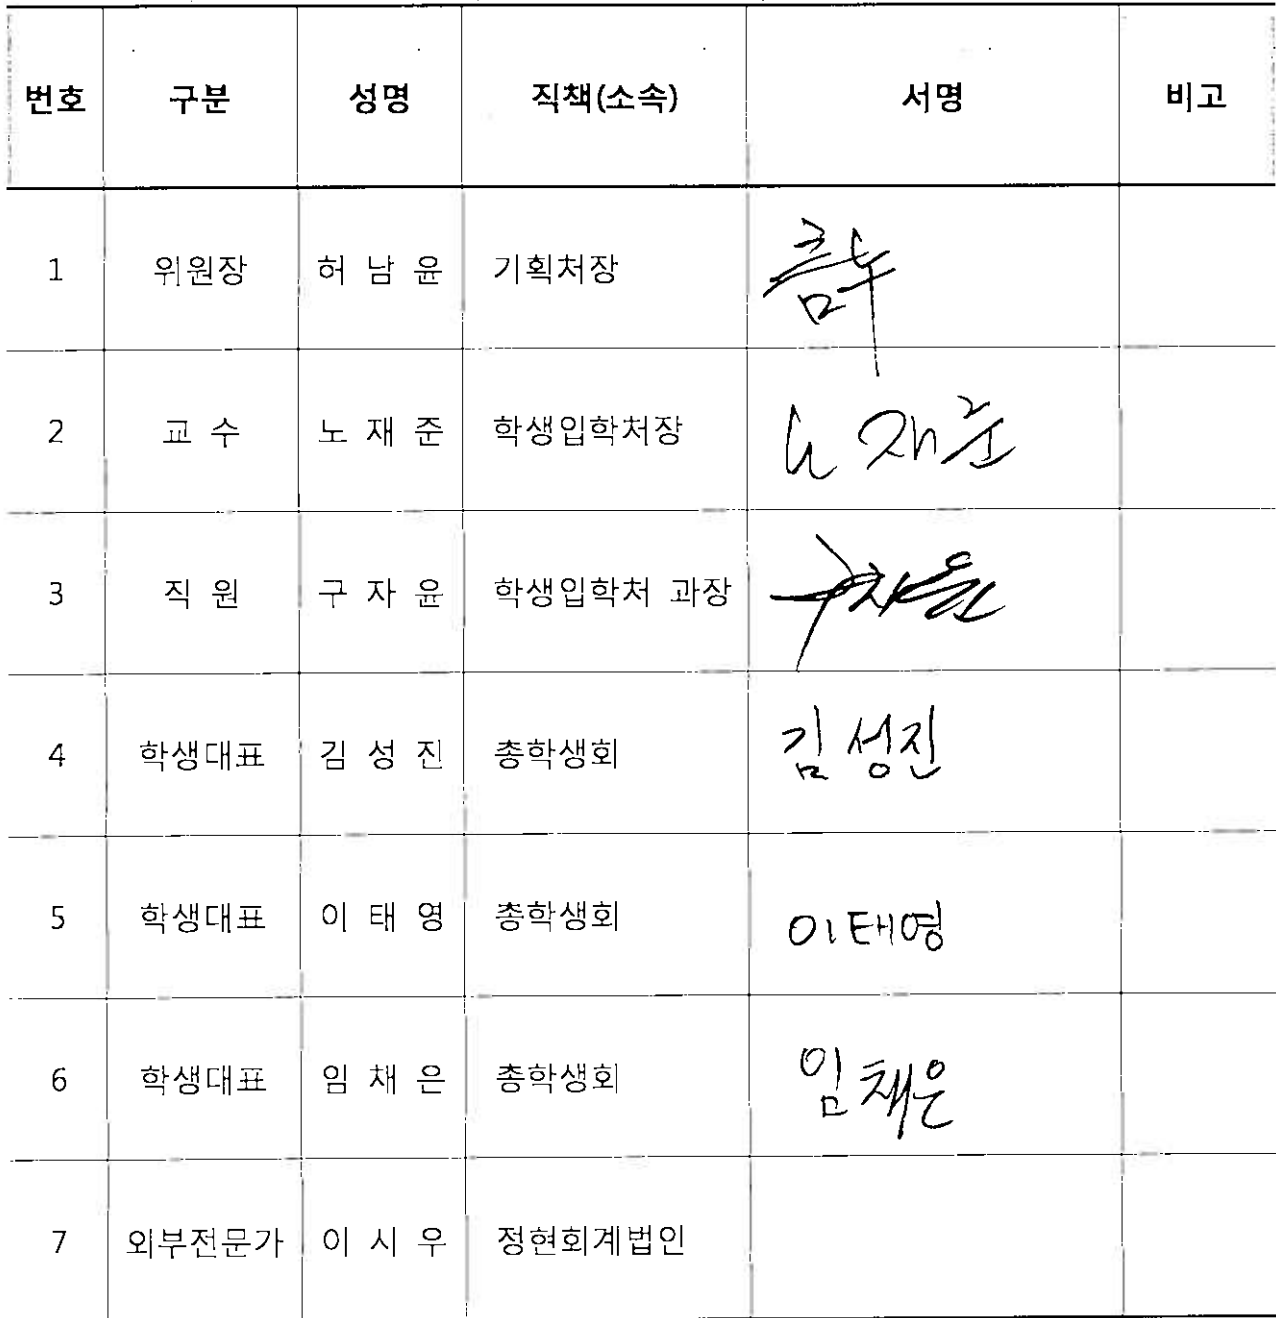 번호 구분 성명 직책(소속) 서명 비고
1 위원장 허 남 윤 기획처장
2 교 수 노 재 준 학생입학처장 노재준
3 직 원 구 자 윤 학생입학처 과장 구자윤
4 학생대표 김 성 진 총학생회 김성진
5 학생대표 이 태 영 총학생회 이태영
6 학생대표 임 채 은 총학생회 임채은
7 외부전문가 이 시 우 정현회계법인